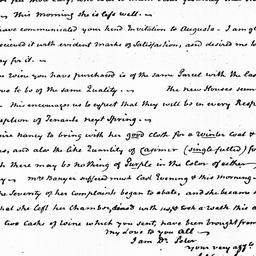 This morning she is left well. —
have communicated your kind Invitation to Augusta — I am
received it with evident marks of Satisfaction, and desired me to
you for it. —
wine you have purchased is of the same Parcel with the last
to be of the same Quality. — The new Houses seem
This encourages us to expect that they will be in every Resp
reception of Tenants next Spring. —
desire nancy to bring with her good cloth for a winter Coat &
and also the like Quantity of Casimer (single-folded) for
there may be nothing of Purple in the color of either
Mrs Banyer suffered much last Evening & this Morning —
the Severity of her complaints began to abate, and she became
that she left her Chamber, dined with us & took a walk this a
two casks of wine which you sent, have been brought from
My Love to you all
I am Dr Peter
your very affte